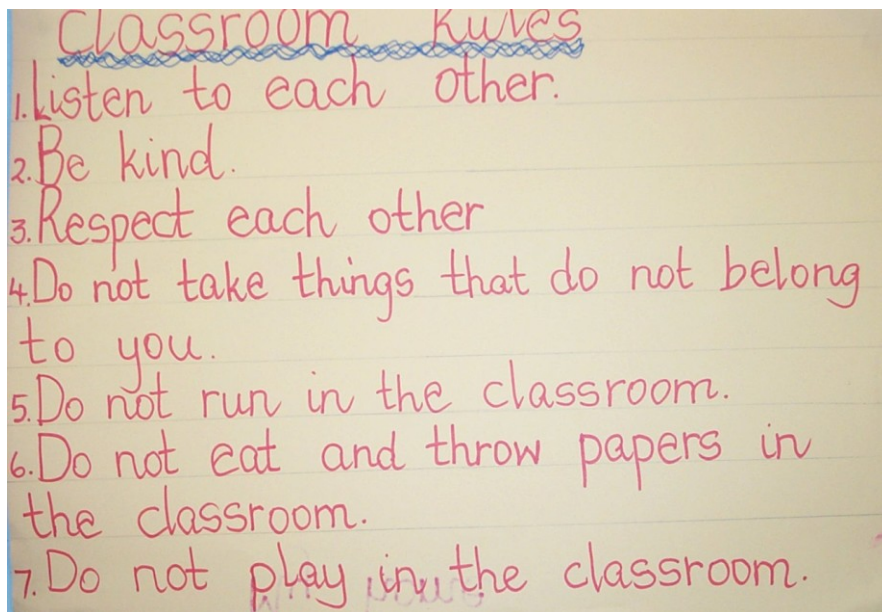 Classroom Rules
1. Listen to each other.
2. Be kind.
3. Respect each other
4. Do not take things that do not belong
to you.
5. Do not run in the classroom.
6. Do not eat and throw papers in
the classroom.
7. Do not play in the classroom.